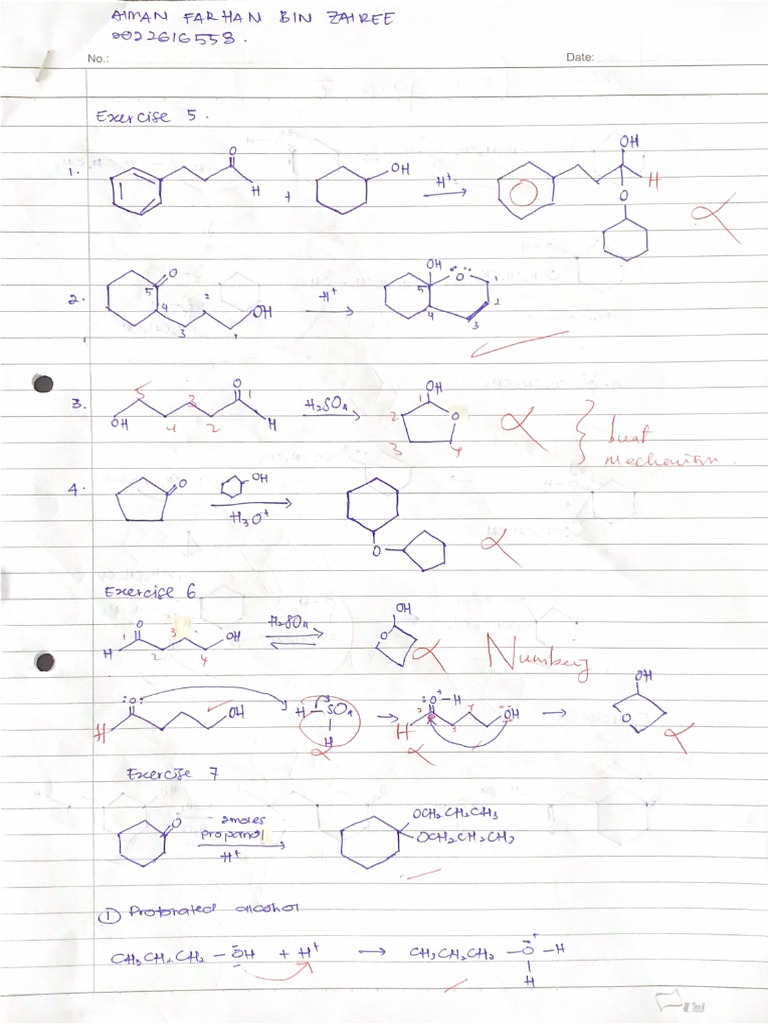 AIMAN FARHAN BIN ZAIREE
0022616558.
No.: Date:
Exercise 5.
1. O H + OH H+ OH H O
2. O 5 4 2 3 1 OH H+ OH O 5 1 2 4 3
3. OH 5 4 3 2 O 1 H H2SO4 OH 1 2 O 3 4 buat
mechanism.
4. O OH H3O+ O
Exercise 6
H 1 O 2 3 4 OH H2SO4 OH O Numbering
H :O: OH H – SO4 H H :O+–H 2 3 4 OH OH O
Exercise 7
O 2moles propanol H+ OCH2CH2CH3
OCH2CH2CH3
① Protonated alcohol
CH3CH2CH2 – OH + H+ → CH3CH2CH2 – O+ – H
H